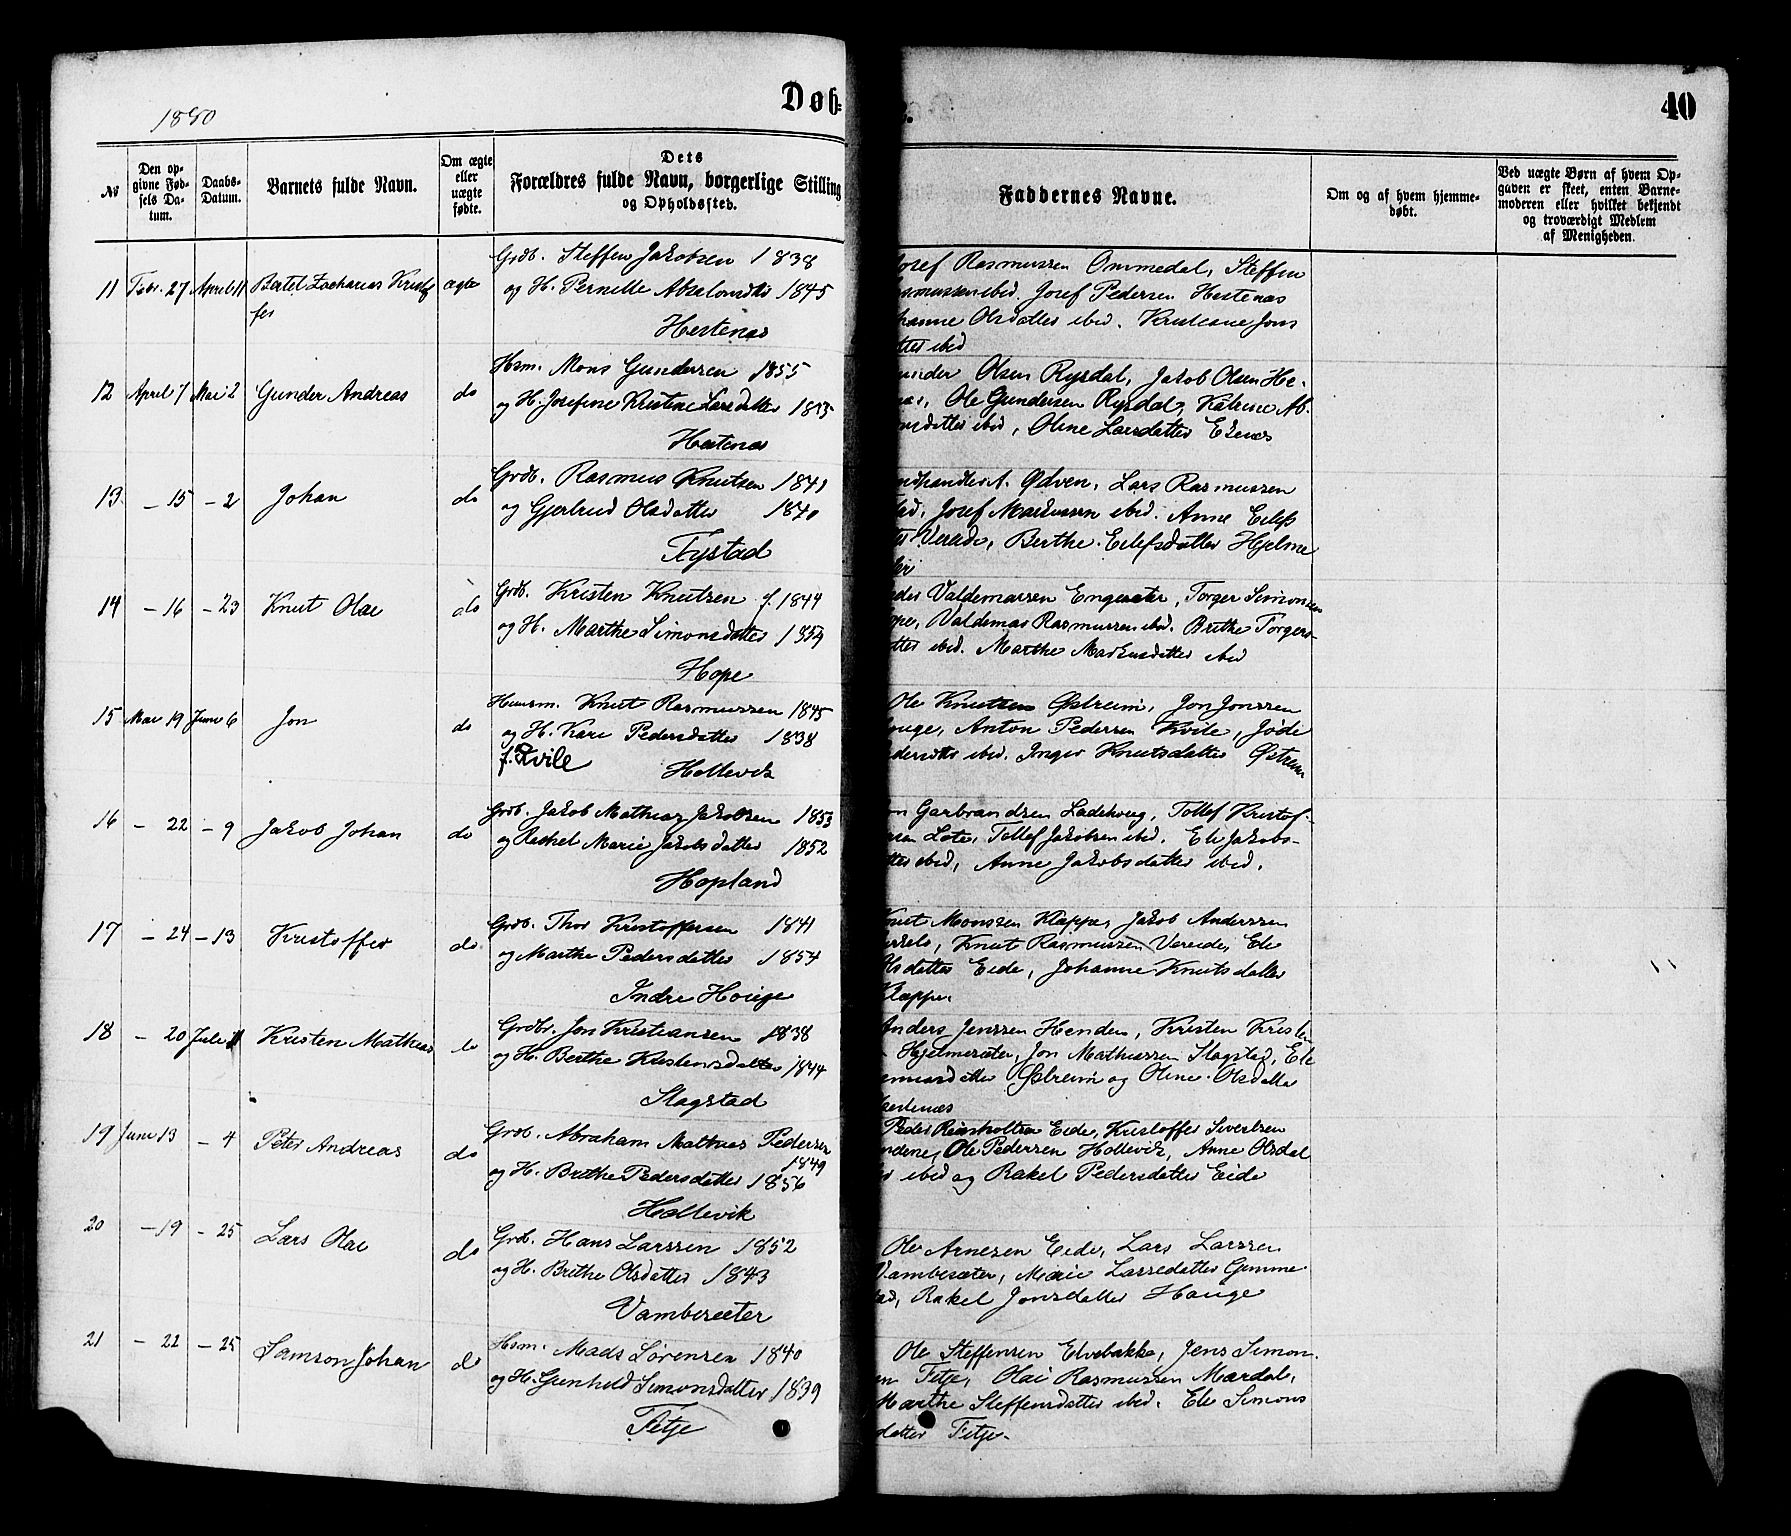 1880
Døb-
40
№
Den opgivne Fødsels Datum.
Daabs-Datum.
Barnets fulde Navn.
Om ægte eller uægte fødte.
Dets Forældres fulde Navn, borgerlige Stilling og Opholdssted.
Faddernes Navne.
Om og af hvem hjemmedøbt.
Ved uægte Børn af hvem Opgaven er skeet, enten Barnemoderen eller hvilket bekjendt og troværdigt Medlem af Menigheden.
11 Febr. 27 April 11 Bertel Zacharias Kristoffer ægte
Grdb. Steffen Jakobsen 1838
og H. Pernille Absalonsdtr 1845
Hestenæs
Josef Rasmussen Ommedal, Steffen
Rasmussen ibid. Josef Pedersen Hestenæs
Olsdatter ibid. Kristiane Jons
ibid
12 April 7 Mai 2 Gunder Andreas do
Hsm. Mons Gundersen 1855
og H. Josefine Kristine Larsdatter 1853
Hestenæs
Olsen Rysdal, Jakob Olsen He-
Ole Gundersen Rysdal, Katrine Ab-
ibid, Oline Larsdatter Ekenæs
13. – 15 – 2 Johan do
Grdb. Rasmus Knutsen 1841
og Gjertrud Olsdatter 1840
Fystad
Ødven, Lars Rasmussen
Josef Markussen ibid. Anne Eilefs
Vereide, Berthe Eilefsdatter Hjelme
14 – 16 – 23 Knut Olai do
Grdb. Kristen Knutsen f. 1844
og H. Marthe Simonsdatter 1854
Hope
Valdemarsen Engesæter, Torger Simonsen
Valdemar Rasmussen ibid. Brithe Torgers-
ibid. Marthe Markusdatter ibid
15 Mai 19 Juni 6 Jon do
Huusm. Knut Rasmussen 1845
og H. Kari Pedersdatter 1838
f. Kvile Hollevik
Ole Knutsen Østreim, Jon Jonssen
Anton Pedersen Kvile, Jødi
ibid. Inger Knutsdatter Østreim
16 – 22 – 9 Jakob Johan do
Grdb. Jakob Mathias Jakobsen 1853
og Rachel Marie Jakobsdatter 1852
Hopland
Garbrandsen Ladehoug, Tollef Kristof-
Lote, Tollef Jakobsen ibid. Eli Jakobs-
ibid, Anne Jakobsdatter ibid.
17 – 24 – 13 Kristoffer do
Grdb. Thor Kristoffersen 1841
og Marthe Pedersdatter 1854
Indre Houge
Knut Monssen Klappe, Jakob Anderssen
Knut Rasmussen Vereide, Eli
Olsdatter Eide, Johanne Knutsdatter
Klappe.
18 – 20 Juli 11 Kristen Mathias do
Grdbr. Jon Kristiansen 1838
og H. Berthe Kristensdatter 1844
Slagstad
Anders Jenssen Henden, Kristen Kristen
Hjelmesæter, Jon Mathiassen Slagstad, Eli
Østreim og Oline Olsdatter
Hestenæs
19 Juni 13 – 4 Peter Andreas do
Grdb. Abraham Mathias Pedersen
1849
og H. Brithe Pedersdatter 1856
Hollevik
Peder Reinholtsen Eide, Kristoffer Sivertsen
Ole Pedersen Hollevik, Anne Olsdat
ibid og Rakel Pedersdatter Eide
20 – 19 – 25 Lars Olai do
Grdb. Hans Larssen 1852
og H. Brithe Olsdatter 1843
Vambesæter
Ole Arnesen Eide, Lars Larssen
Vambesæter, Marie Larsdatter Gimme-
Rakel Jonsdatter Hauge
21 – 22 – 25 Samson Johan do
Hsm. Mads Sørensen 1840
og H. Gunhild Simonsdatter 1839
Fetje
Ole Steffensen Elvebakke, Jens Simon-
Fetje, Olai Rasmussen Mardal,
Marthe Steffensdatter ibid. Eli Simons
datter Fetje.